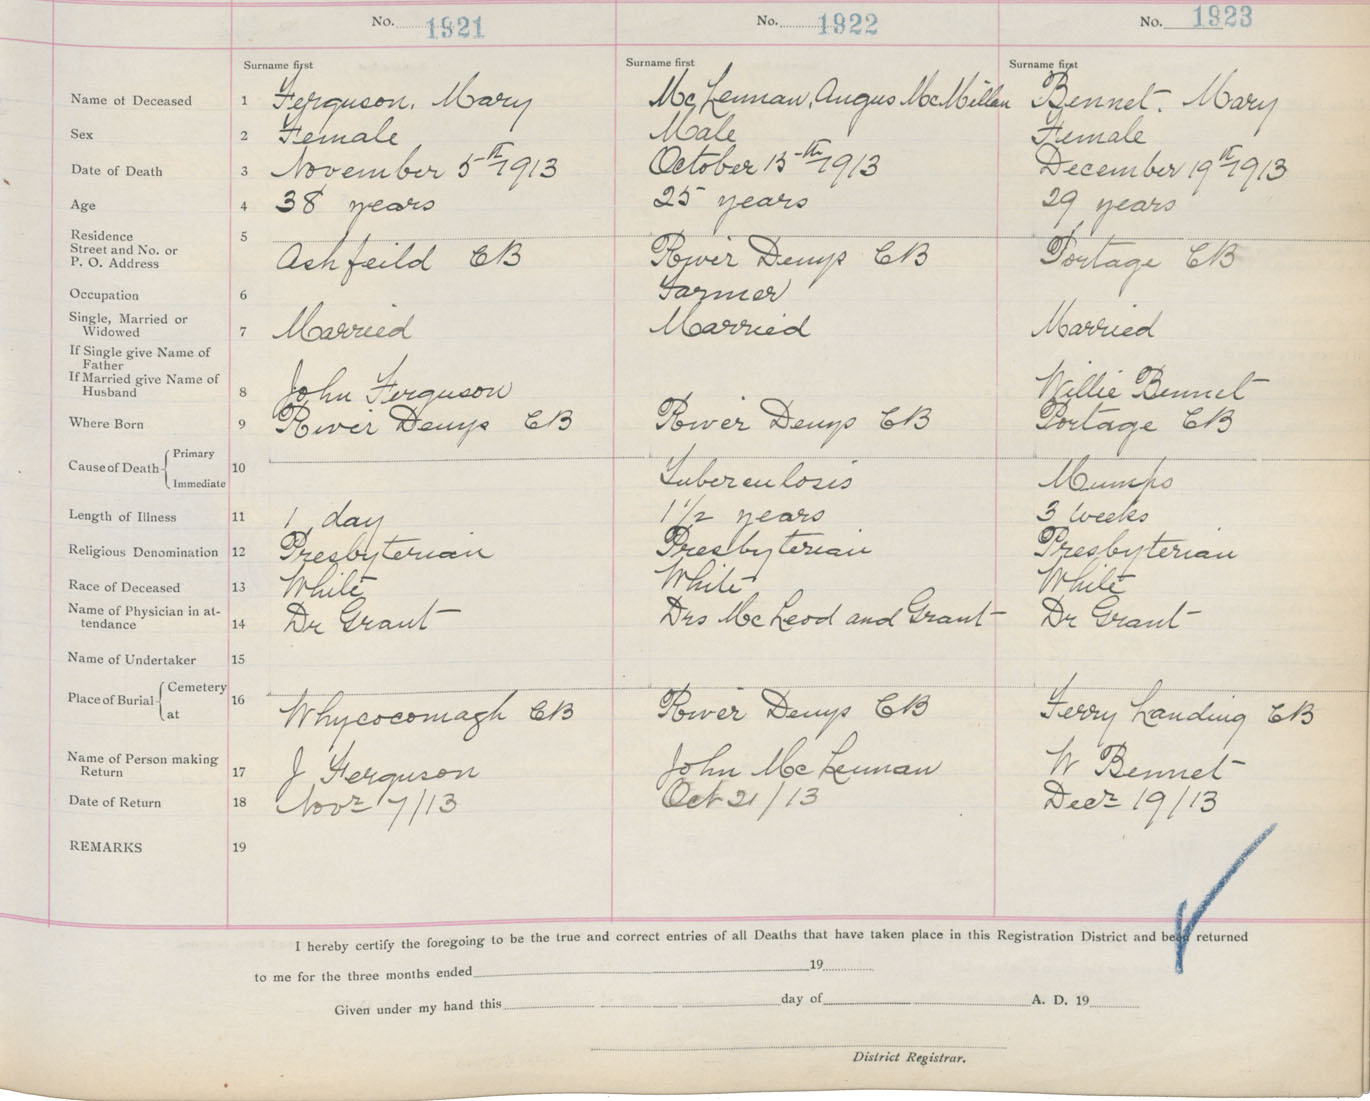 No. 1821 No. 1822 No. 1823
Surname first Surname first Surname first
Name of Deceased 1 Ferguson, Mary McLennan, Angus McMillan Bennet. Mary
Sex 2 Female Male Female
Date of Death 3 November 5th 1913 October 15th 1913 December 19th 1913
Age 4 38 years 25 years 29 years
Residence 5
Street and No. or
P. O. Address Ashfeild CB River Denys CB Portage CB
Occupation 6 Farmer
Single, Married or
Widowed 7 Married Married Married
If Single give Name of
Father
If Married give Name of
Husband 8 John Ferguson Willie Bennet
Where Born 9 River Denys CB River Denys CB Portage CB
Cause of Death Primary 10
Immediate Tuberculosis Mumps
Length of Illness 11 1 day 1 1/2 years 3 weeks
Religious Denomination 12 Presbyterian Presbyterian Presbyterian
Race of Deceased 13 White White White
Name of Physician in at-
tendance 14 Dr Grant Drs McLeod and Grant Dr Grant
Name of Undertaker 15
Place of Burial Cemetery 16
at Whycocomagh CB River Denys CB Ferry Landing CB
Name of Person making
Return 17 J Ferguson John McLennan W Bennet
Date of Return 18 Novr 7/13 Oct 21/13 Decr 19/13
REMARKS 19
I hereby certify the foregoing to be the true and correct entries of all Deaths that have taken place in this Registration District and been returned
to me for the three months ended 19
Given under my hand this day of A. D. 19
District Registrar.